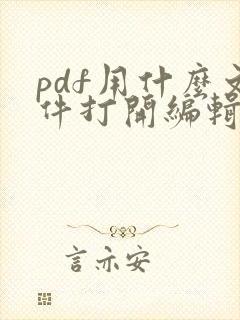 pdf用什麼文
件打開編輯
言亦安